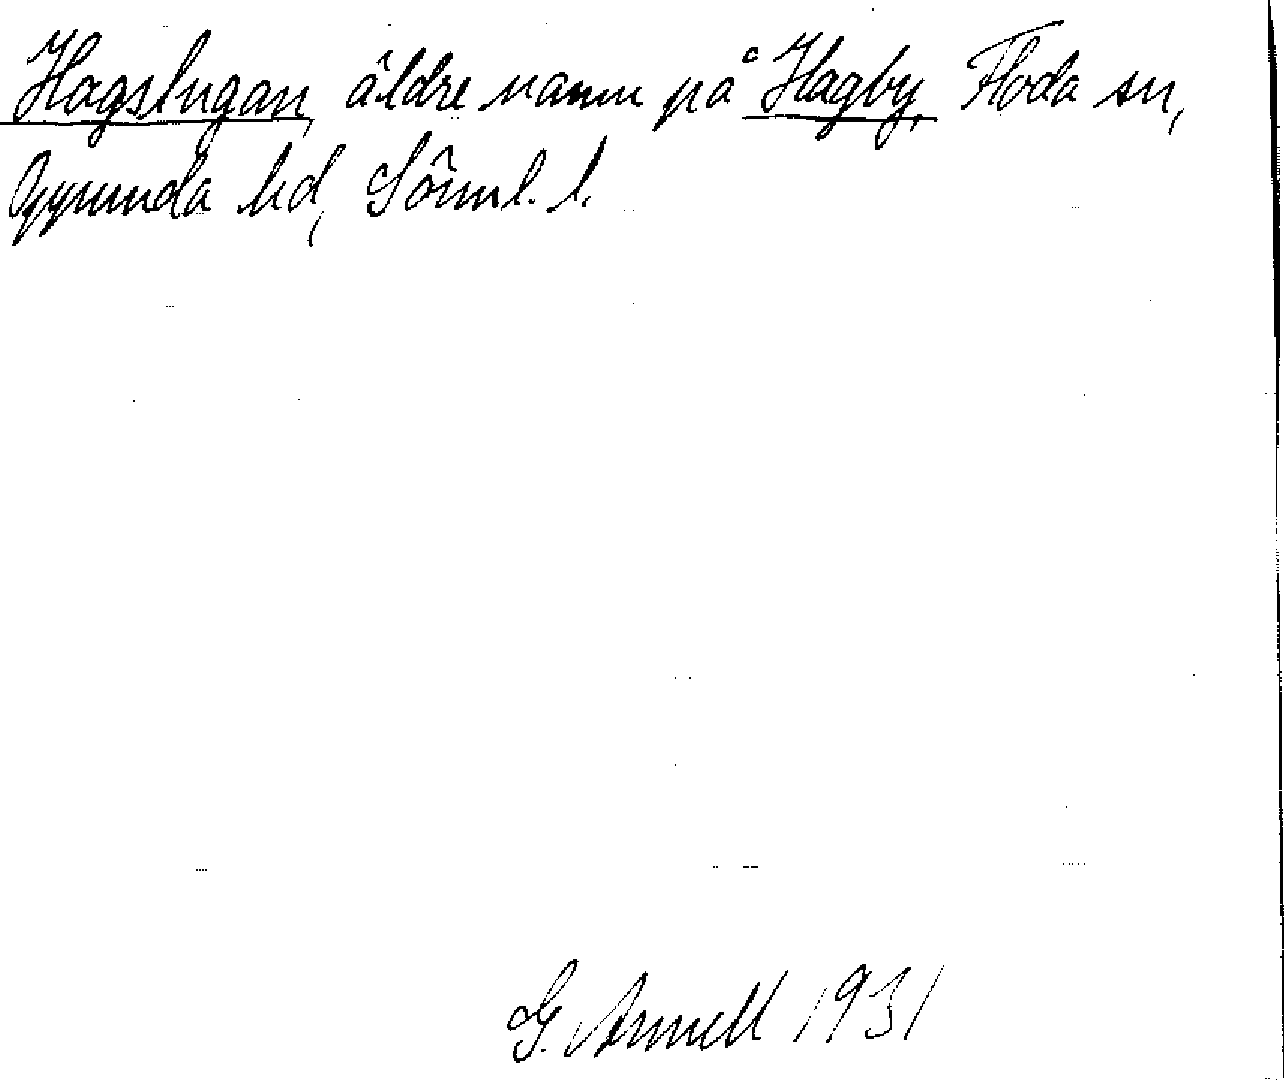 Hagstugan, äldre namn på Hagby, Floda sn,
Oppunda hd, Sörml. l.
G. Arnell 1931